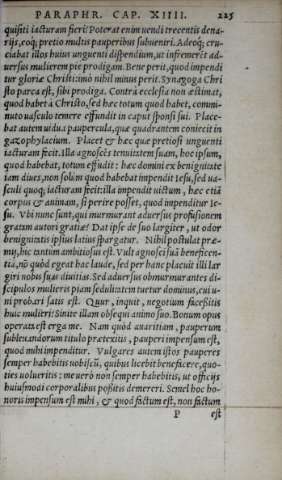 PARAPHR. CAP. XIIII. 225
quisiti iacturam fieri? Poterat enim uendi trecentis dena-
rijs, eoq; pretio multis pauperibus subueniri. Adeoq; cru-
ciabat illos huius unguenti dispendium, ut infremerēt ad-
uersus mulierem pie prodigam. Bene perit, quod impendi
tur gloriæ Christi: imò nihil minus perit. Synagoga Chri
sto parca est, sibi prodiga. Contrà ecclesia non æstimat,
quod habet à Christo, sed hæc totum quod habet, commi-
nuto uasculo temere effundit in caput sponsi sui. Place-
bat autem uidua paupercula, quæ quadrantem coniecit in
gazophylacium. Placet & hæc quæ pretiosi unguenti
iacturam fecit. Illa agnoscēs tenuitatem suam, hoc ipsum,
quod habebat, totum effudit: hæc domini ex benignitate
iam diues, non solùm quod habebat impendit Iesu, sed ua-
sculi quoq; iacturam fecit: illa impendit uictum, hæc etiā
corpus & animam, si perire posset, quod impenditur Ie-
su. Vbi nunc sunt, qui murmurant aduersus profusionem
gratam autori gratiæ? Dat ipse de suo largiter, ut odor
benignitatis ipsius latius spargatur. Nihil postulat præ-
mij, hic tantum ambitiosus est. Vult agnosci suā beneficen-
tia, nō quòd egeat hac laude, sed per hanc placuit illi lar
giri nobis suas diuitias. Sed aduersus obmurmurantes di-
scipulos mulieris piam sedulitatem tuetur dominus, cui u-
ni probari satis est. Quur, inquit, negotium facessitis
huic mulieri? Sinite illam obsequi animo suo. Bonum opus
operata est erga me. Nam quòd auaritiam, pauperum
subleuandorum titulo prætexitis, pauperi impensum est,
quod mihi impenditur. Vulgares autem istos pauperes
semper habebitis uobiscū, quibus licebit benefacere, quo-
ties uolueritis: me uerò non semper habebitis, ut officijs
huiusmodi corporalibus possitis demereri. Semel hoc ho-
noris impensum est mihi, & quod factum est, non factum
P est